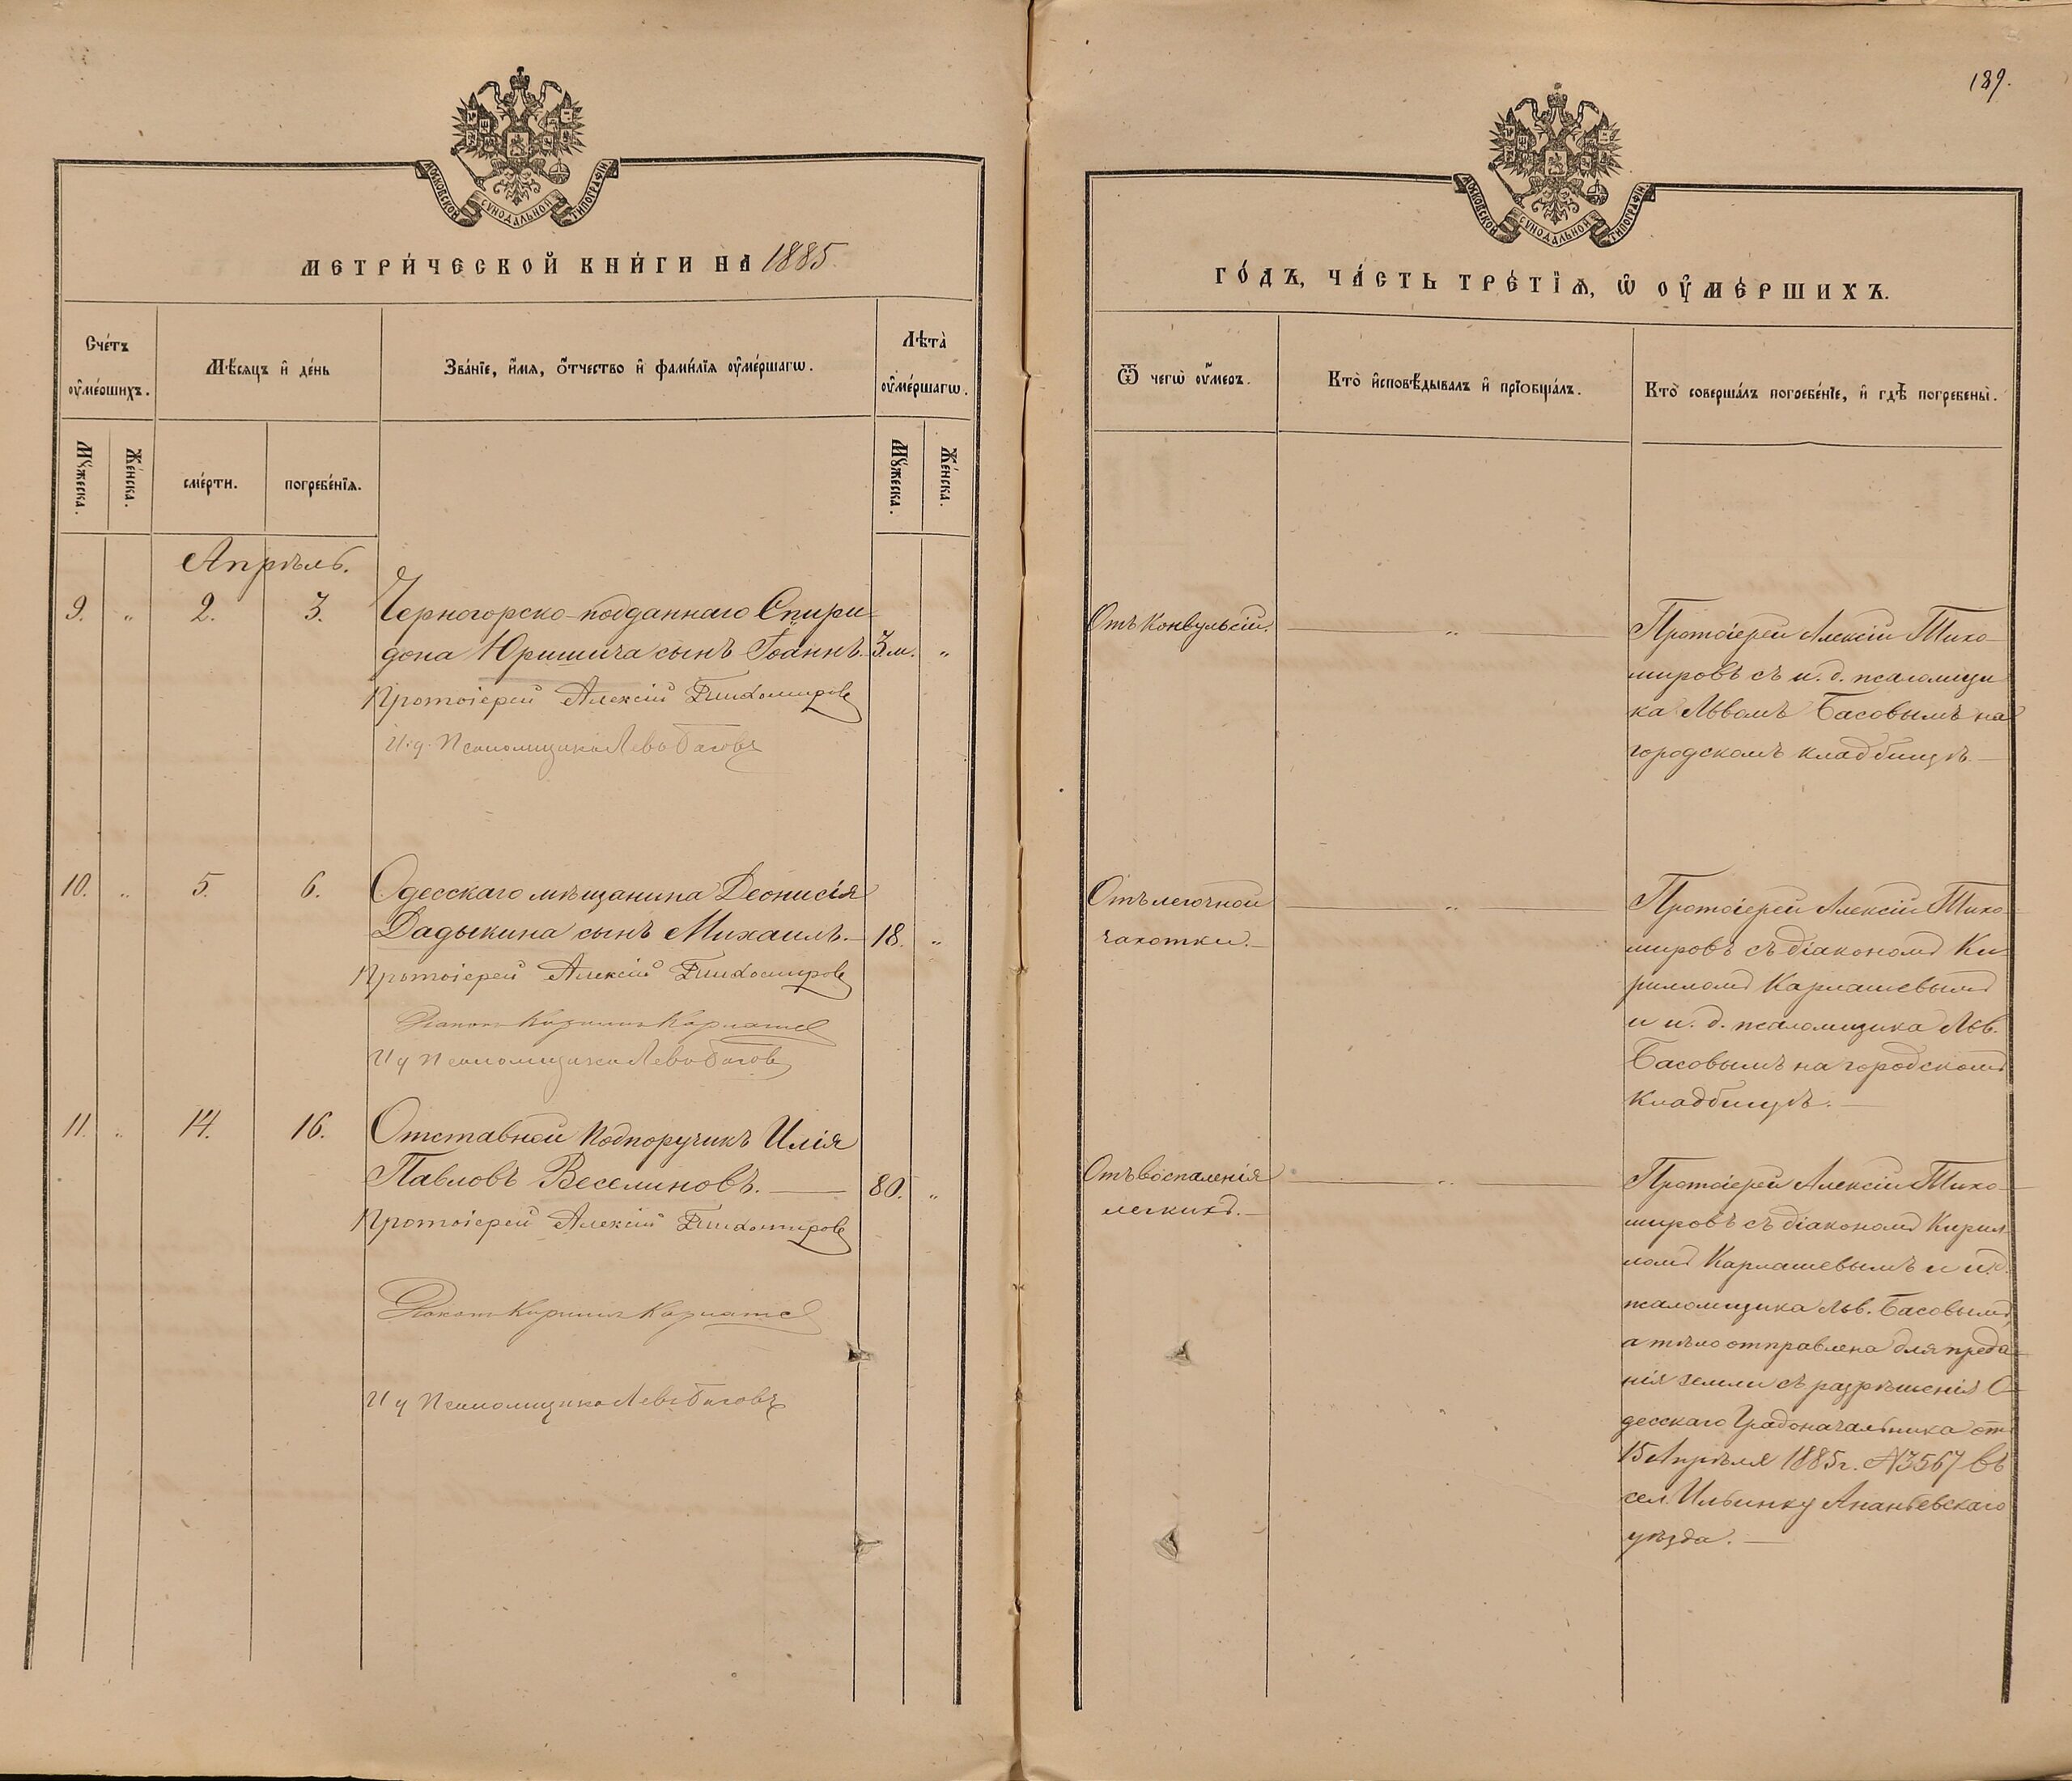 189.
МОСКОВСКОЙ СѴНОДАЛЬНОЙ ТИПОГРАФІИ
МОСКОВСКОЙ СѴНОДАЛЬНОЙ ТИПОГРАФІИ
МЕТРИ́ЧЕСКОЙ КНИ́ГИ НА 1885
ГО́ДЪ, ЧА́СТЬ ТРЕ́ТІѦ, Ѡ҆ ОУ҆МЕ́РШИХЪ.
Сче́тъ
оу҆ме́ршихъ.
Мѣ́сѧцъ и҆ де́нь
Зва́ніе, и҆́мѧ, ѻ҆́тчество и҆ фами́лїѧ оу҆ме́ршагѡ.
Лѣ́та̀
оу҆ме́ршагѡ.
Ѿ чегѡ̀ оу҆́меръ.
Кто̀ и҆сповѣ́дывалъ и҆ прїѻбща́лъ.
Кто̀ соверша́лъ погребе́нїе, и҆ гдѣ̀ погребены̀.
Мꙋ́жеска.
Же́нска.
сме́рти.
погребе́нїѧ.
Мꙋ́жеска.
Же́нска.
Апрѣль.
9. „ 2. 3. Черногорско-подданнаго Спири-
дона Юришича сынъ Іоаннъ. 3 м. „
Протоіерей Алексій Тихомировъ
И. д. Псаломщика Левъ Басовъ
Отъ конвульсій. „
Протоіерей Алексій Тихо-
мировъ съ и. д. псаломщи
ка Львомъ Басовымъ на
городскомъ кладбищѣ.
10. „ 5. 6. Одесскаго мѣщанина Деонисія
Дадыкина сынъ Михаилъ. 18. „
Протоіерей Алексій Тихомировъ
Діаконъ Кириллъ Карлашев
И д Псаломщика Левъ Басовъ
Отъ легочной „
чахотки.
Протоіерей Алексій Тихо-
мировъ съ діакономъ Ки-
рилломъ Карлашевымъ
и и. д. псаломщика Льв.
Басовымъ на городскомъ
кладбищѣ.
11. „ 14. 16. Отставной подпоручикъ Илія
Павловъ Веселиновъ. 80. „
Протоіерей Алексій Тихомировъ
Діаконъ Кириллъ Карлашев
И д Псаломщика Левъ Басовъ
Отъ воспаленія „
легкихъ.
Протоіерей Алексій Тихо-
мировъ съ діакономъ Кирил-
ломъ Карлашевымъ и и. д.
псаломщика Льв. Басовымъ,
а тѣло отправлено для преда-
нія земли съ разрѣшенія О-
десскаго Градоначальника отъ
15 Апрѣля 1885 г. № 3567 въ
сел. Ильинку Ананьевскаго
уѣзда.